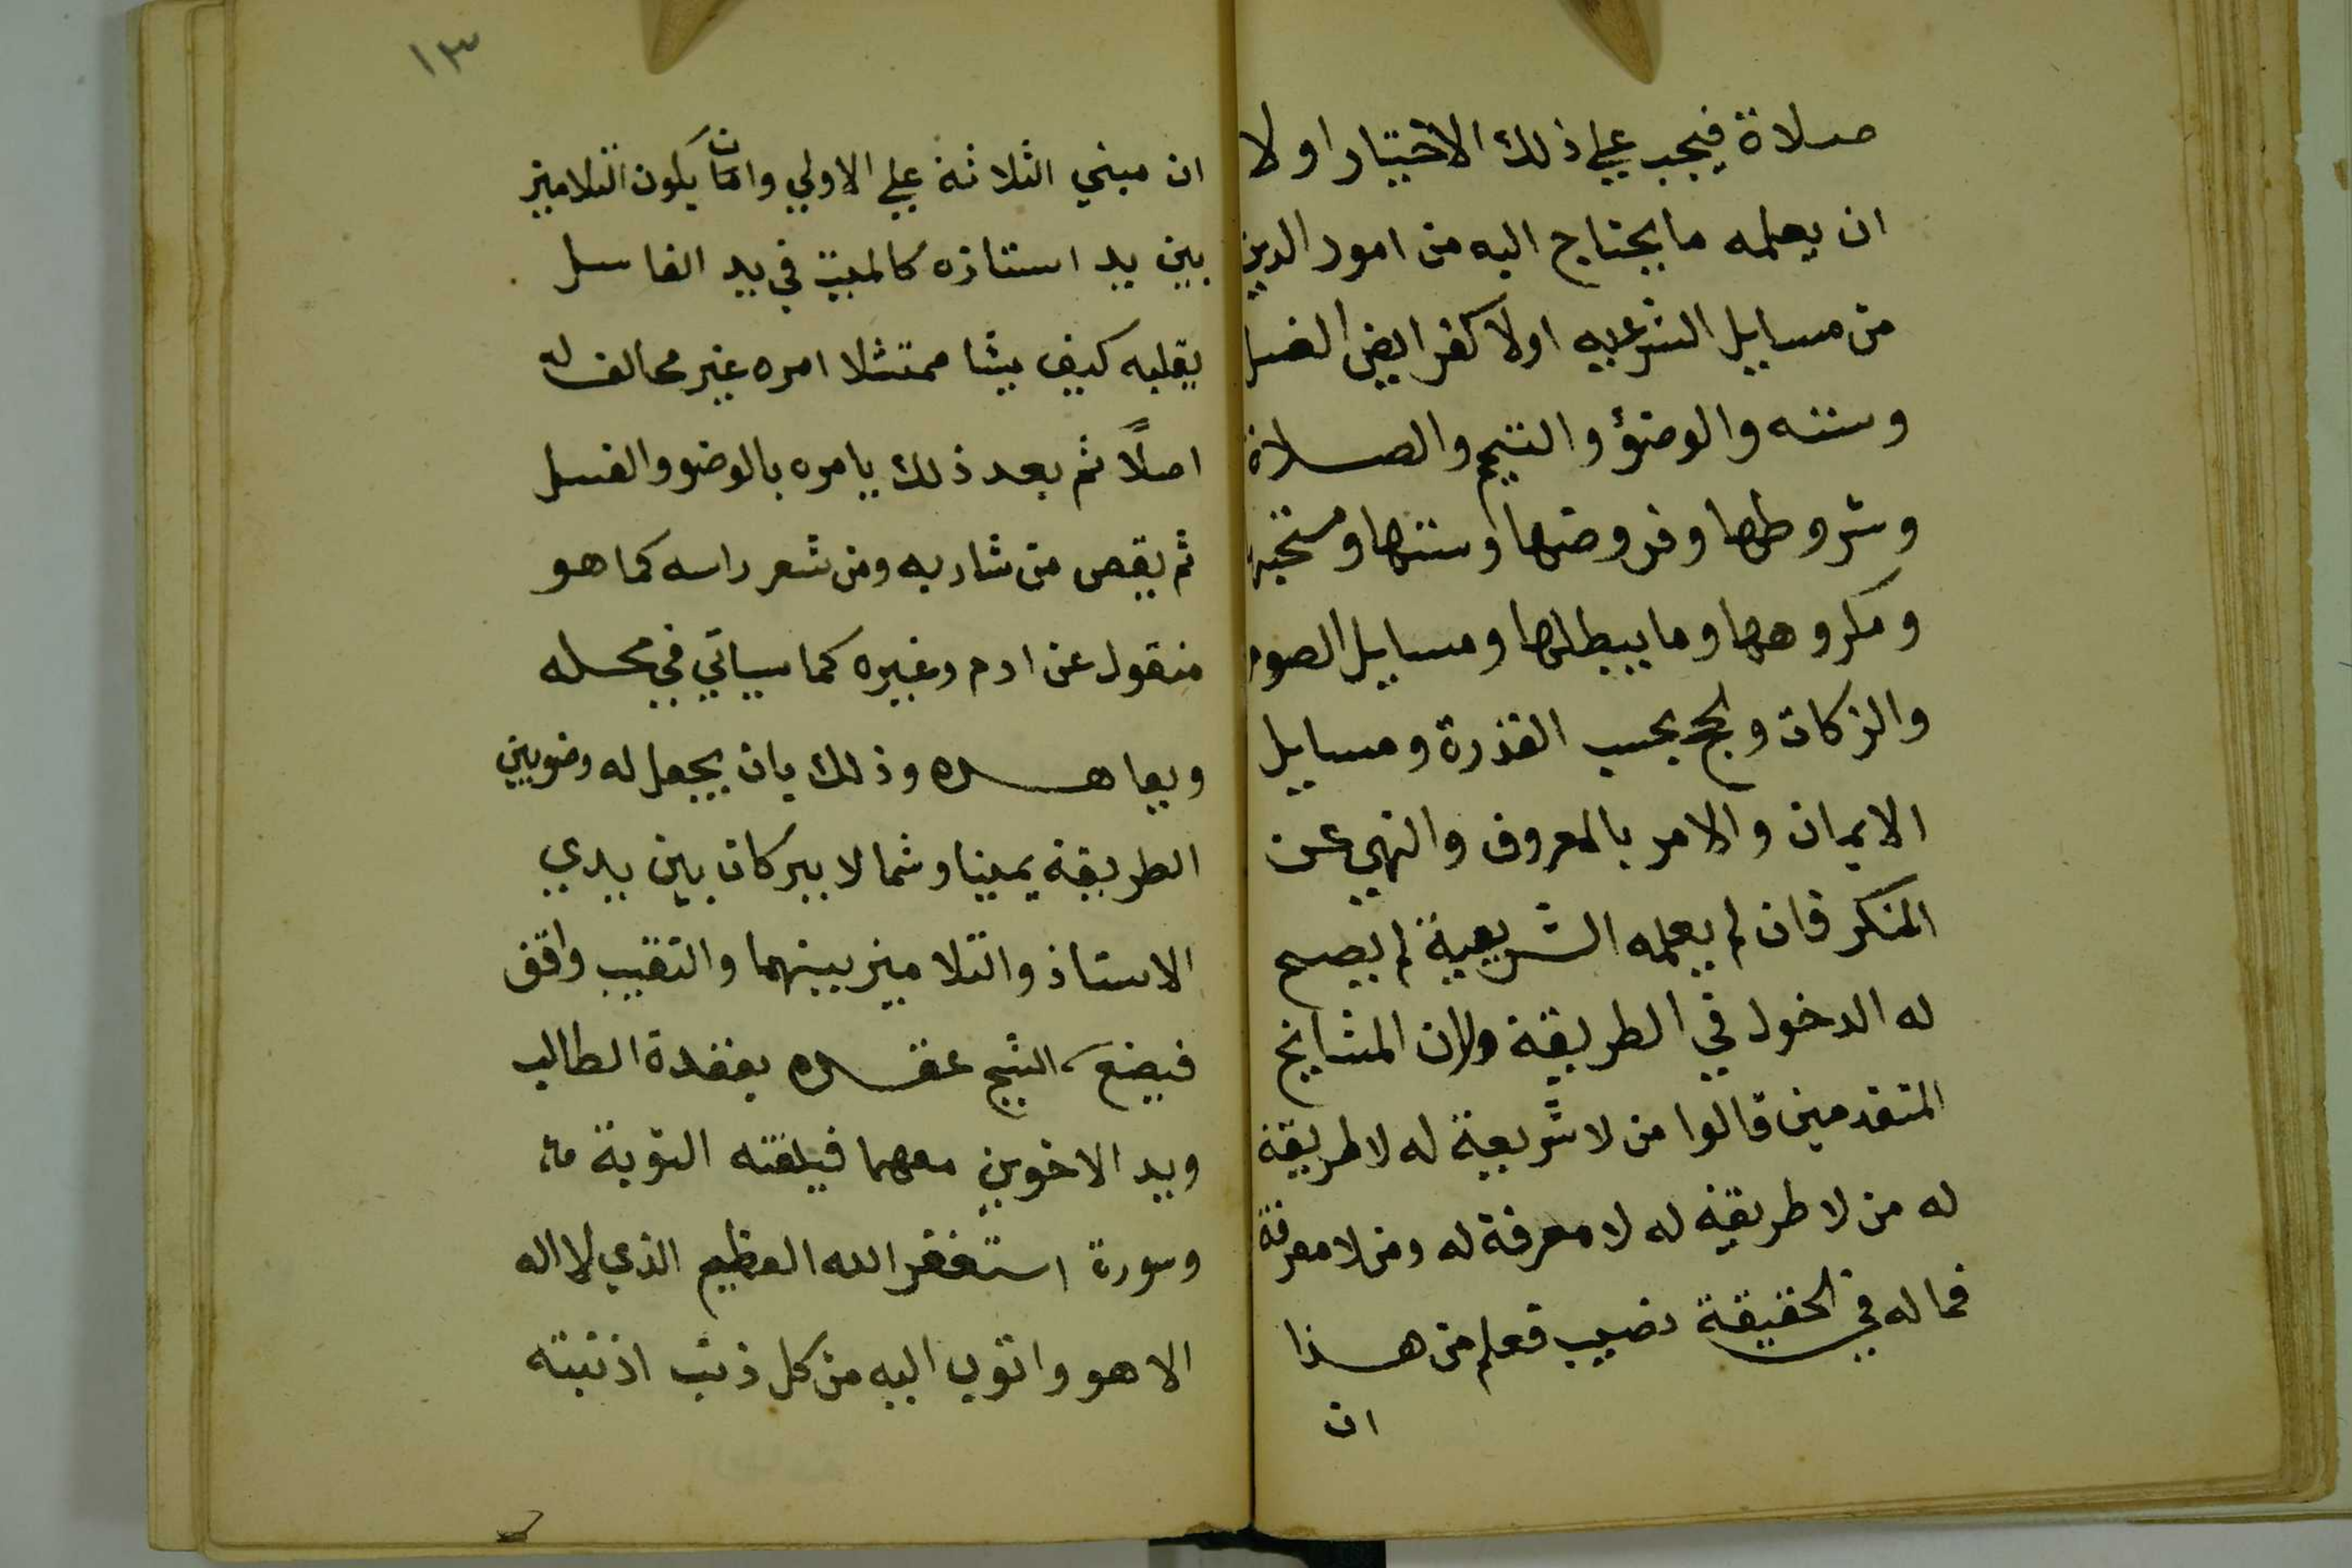 صلاة فيجب علي ذلك الاختيار اولا
ان يعلمه ما يحتاج اليه من امور الدين
من مسايل الشرعيه اولا كفرايض الغسل
وسننه والوضؤ والتيمم والصلاة
وشروطها وفروضها وسننها ومستحبها
ومكروهها وما يبطلها ومسايل الصوم
والزكاة والحج بحسب القدرة ومسايل
الايمان والامر بالمعروف والنهي عن
المنكر فان لم يعلمه الشريعة لم يصح
له الدخول في الطريقة ولان المشايخ
المتقدمين قالوا من لا شريعة له لا طريقة
له من لا طريقة له لا معرفة له ومن لا معرفة
فما له في الحقيقة نصيب فعلم من هذا
ان
١٣
ان مبني الثلاثة علي الاولي وان يكون التلاميذ
بين يد استاذه كالميت في يد الغاسل
يقلبه كيف يشا ممتثلا امره غير مخالف له
اصلاً ثم بعد ذلك يامره بالوضو والغسل
ثم يقص من شاربه ومن شعر راسه كما هو
منقول عن ادم وغيره كما سياتي في محله
ويعاهده وذلك بان يجعل له وضويين
الطريقة يمينا وشمالا يبركان بين يدي
الاستاذ والتلاميذ بينهما والنقيب واقف
فيضع الشيخ عقده بعقدة الطالب
ويد الاخوين معهما فيلقنه التوبة
وسورة استغفر الله العظيم الذي لا اله
الا هو واتوب اليه من كل ذنب اذنبته